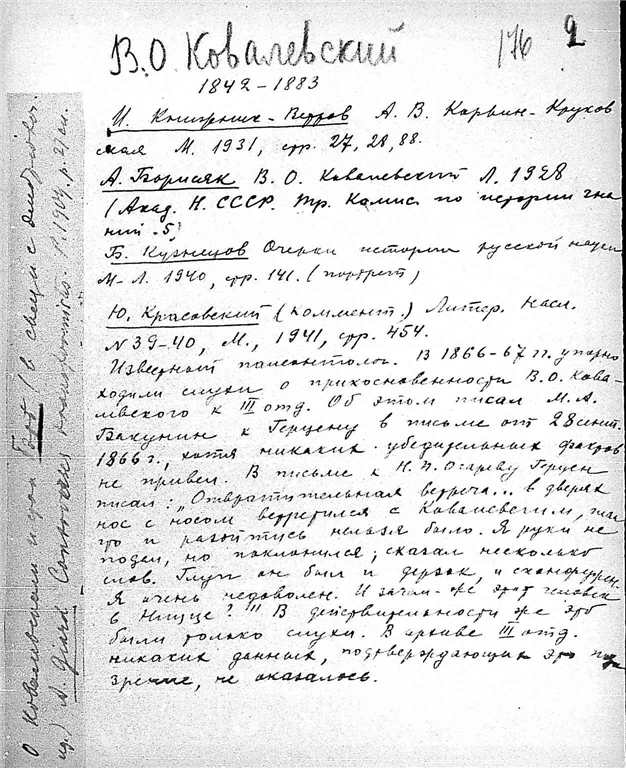 В.О. Ковалевский
176 2
1842-1883
И. Книжник-Ветров А. В. Корвин-Круков
ская М. 1931, стр. 27, 28, 88.
А. Борисяк В. О. Ковалевский Л. 1928
(Акад. Н. СССР. Тр. Комис. по истории зна
ний .5)
Б. Кузнецов Очерки истории русской науки
М-Л. 1940, стр. 141. (портрет)
Ю. Красовский (коммент.) Литер. Насл.
N 39-40, М., 1941, стр. 454.
Известный палеонтолог. В 1866-67 гг. упорно
ходили слухи о прикосновенности В.О. Кова-
левского к III отд. Об этом писал М.А.
Бакунин к Герцену в письме от 28 сент.
1866 г., хотя никаких убедительных фактов
не привел. В письме к Н. П. Огареву Герцен
писал: „Отвратительная встреча... в дверях
нос с носом встретился с Ковалевским, так
что и разойтись нельзя было. Я руки не
подал, но поклонился; сказал несколько
слов. Глуп он был и дерзок, и сконфужен.
Я очень недоволен. И зачем-же этот человек
в Ницце?" В действительности же это
были только слухи. В архиве III отд.
никаких данных, подтверждающих это подо
зрение, не оказалось.
О Ковалевском и при (в связи с
A. Giard Controverses transformistes. P. 1904, p. 21 сл.